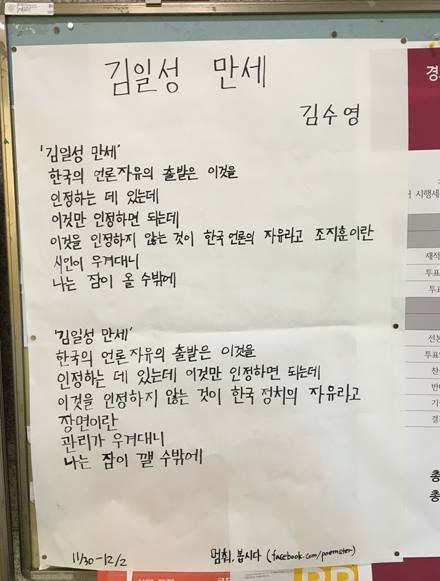 김일성 만세
김수영
'김일성 만세'
한국의 언론자유의 출발은 이것을
인정하는 데 있는데
이것만 인정하면 되는데
이것을 인정하지 않는 것이 한국 언론의 자유라고 조지훈이란
시인이 우겨대니
나는 잠이 올 수밖에
'김일성 만세'
한국의 언론자유의 출발은 이것을
인정하는 데 있는데 이것만 인정하면 되는데
이것을 인정하지 않는 것이 한국 정치의 자유라고
장면이란
관리가 우겨대니
나는 잠이 깰 수밖에
11/30-12/2
멈춰, 봅시다 (facebook.com/poemster)
경
시행세
재적
투표
투표
선본
투표
찬
반
기
결
총
총